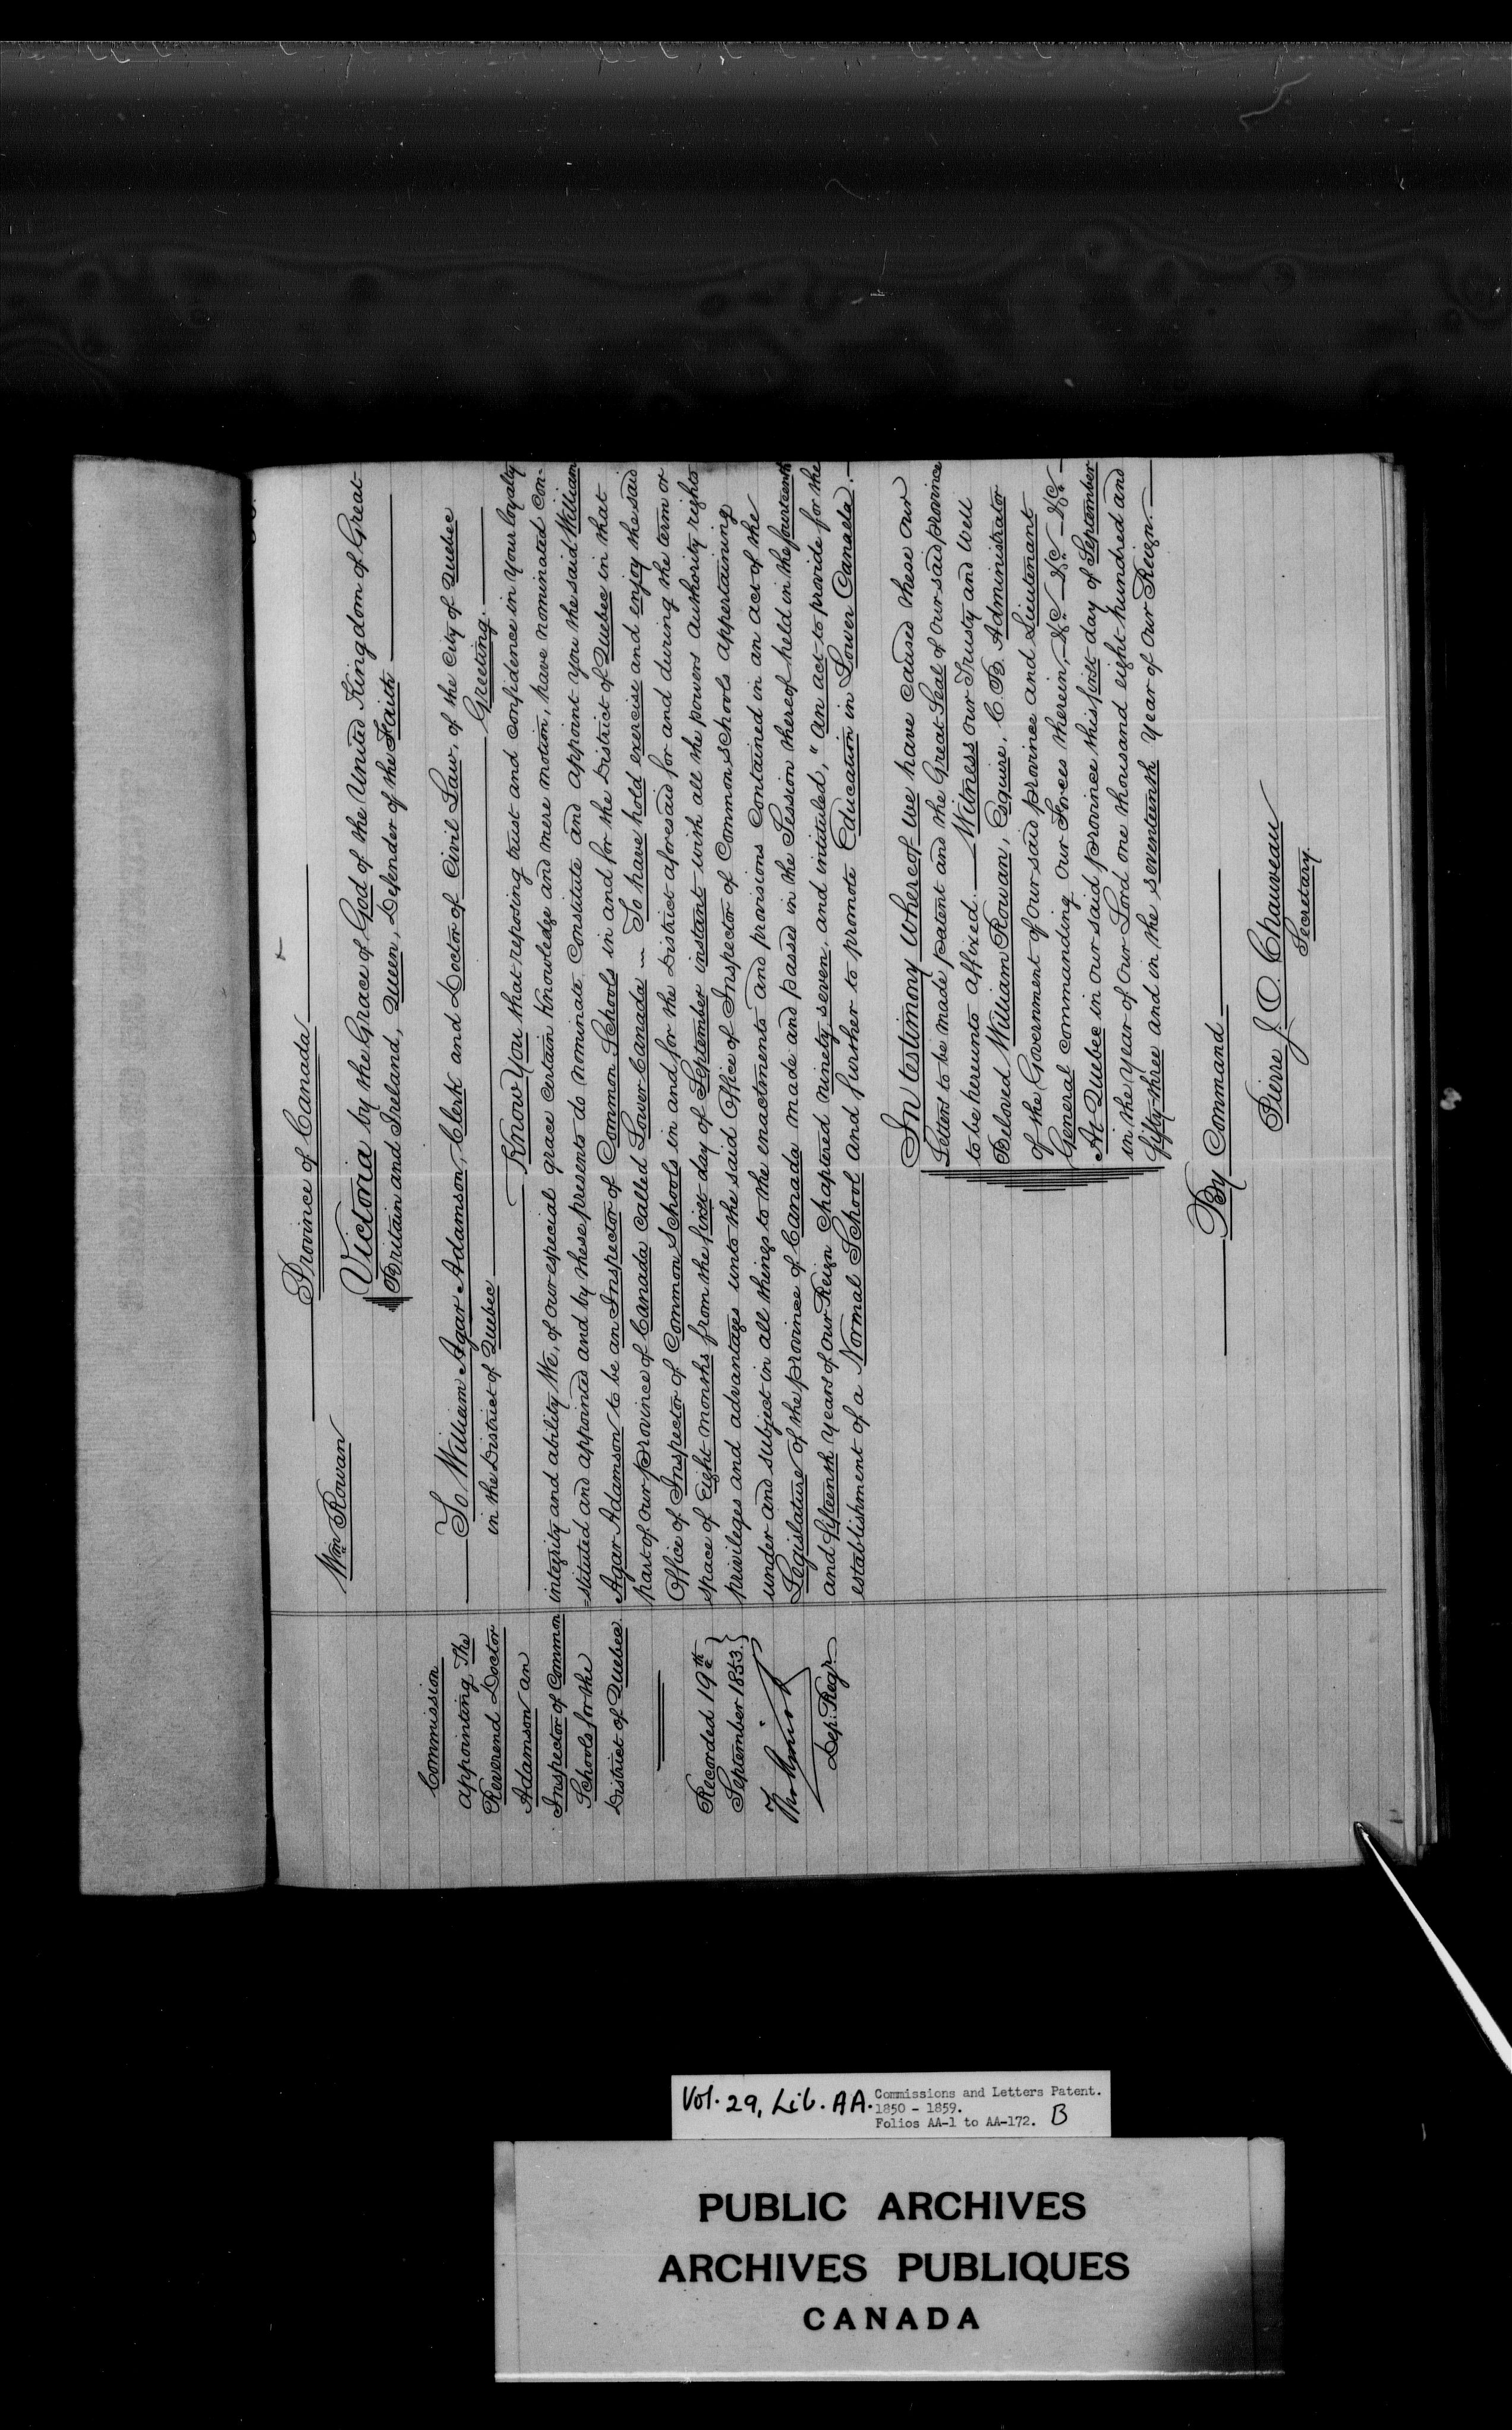 Wm Rowan
Province of Canada
Victoria by the Grace of God of the United Kingdom of Great
Britain and Ireland, Queen, Defender of the Faith
Commission
appointing The
Reverend Doctor
Adamson an
Inspector of Common
Schools for the
District of Quebec
Recorded 19th
September 1853.
Dep: Regr.
To William Agar Adamson, Clerk and Doctor of Civil Law, of the City of Quebec
in the District of Quebec Greeting.
Know You that reposing trust and confidence in your loyalty
integrity and ability We, of our especial grace certain knowledge and mere motion, have nominated con-
=stituted and appointed and by these presents do nominate constitute and appoint you the said William
Agar Adamson to be an Inspector of Common Schools in and for the District of Quebec in that
part of our province of Canada called Lower Canada To have hold exercise and enjoy the said
Office of Inspector of Common Schools in and for the District aforesaid for and during the term or
space of Eight months from the first day of September instant with all the powers authority rights
privileges and advantages unto the said Office of Inspector of Common Schools appertaining
under and subject in all things to the enactments and provisions contained in an act of the
Legislature of the province of Canada made and passed in the Session thereof held in the fourteenth
and fifteenth years of our Reign Chaptered ninety seven, and intituled, "An act to provide for the
establishment of a Normal School and further to promote Education in Lower Canada.
In testimony whereof we have caused these our
Letters to be made patent and the Great Seal of our said province
to be hereunto affixed. Witness our Trusty and Well
Beloved William Rowan, Esquire, C. B. Administrator
of the Government of our said province and Lieutenant
General commanding our Forces therein, &c &c &c &c
At Quebec in our said province this first day of September
in the year of our Lord one thousand eight hundred and
fifty-three and in the seventeenth year of our Reign.
By Command
Pierre J. O. Chauveau
Secretary.
Vol. 29, Lib. AA. Commissions and Letters Patent.
1850 - 1859.
Folios AA-1 to AA-172. B
PUBLIC ARCHIVES
ARCHIVES PUBLIQUES
CANADA